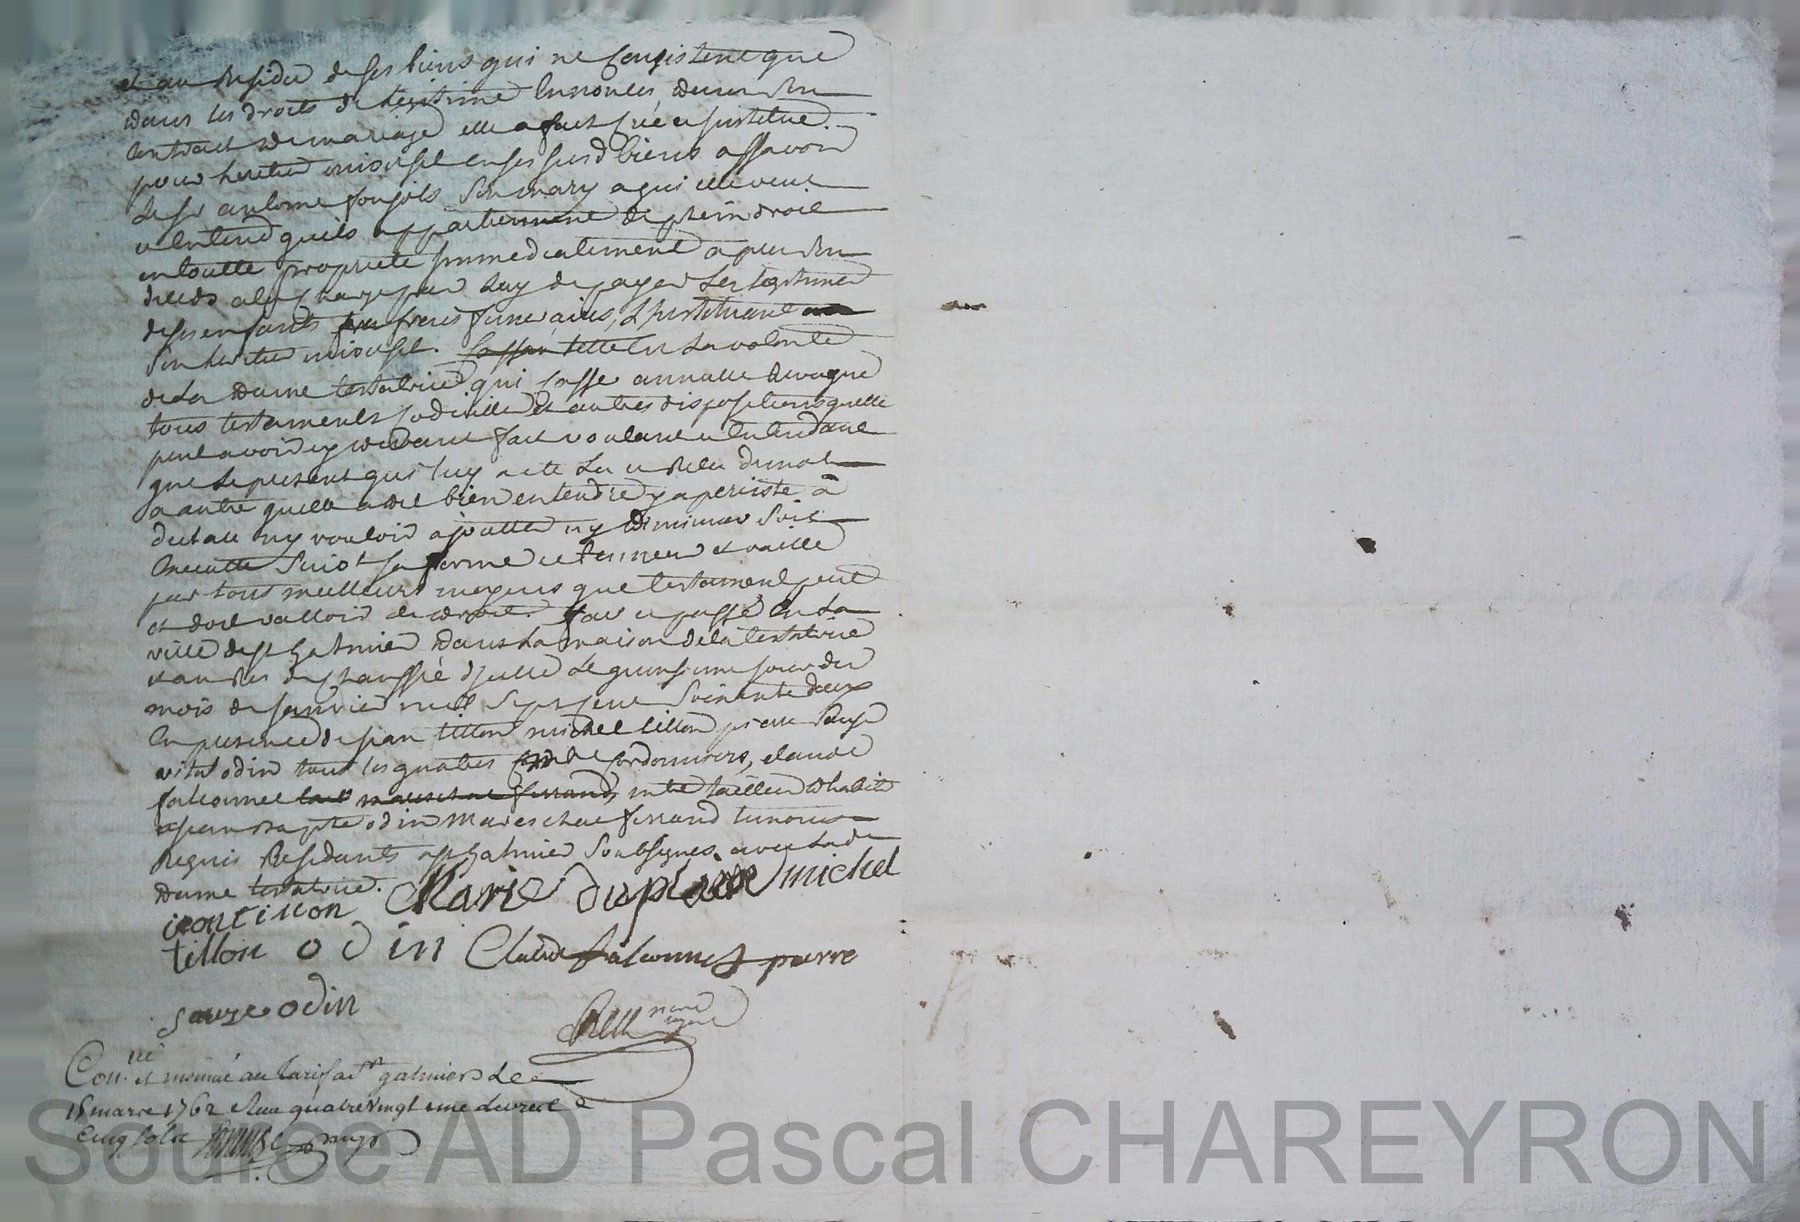 et au Residu de ses biens qui ne Consistent que
dans les droits de legitime Ennoncés dans son
Contract de mariage elle a fait Creé et justitué
pour heritier universel en ses susd biens assavoir
le sr antoine son mary a qui elle veut
et Entend quils appartiennent de plein droit
en toutte propriete jmmediatement apres son
deceds a la Charge par luy de payer les legitimes
de ses enfants
son heritier universel. telle Est la volonté
de la Dame testatrice qui Casse annulle Revoque
tous testaments Codicilles et autres dispositions quelle
peut avoir cy devant fait voulant et Entendant
que le present qui luy a eté lu et Relu de mot
a autre quelle a dit bien entendre y a persisté a
dit au ny vouloir ajoutter ny diminuer soit
Executté suivt sa forme et teneur et vaille
par tous meilleurs moyens que testament peut
et doit valloir de droit. fait et passé En la
ville de st Galmier dans la maison de la testatrice
et au Res de Chaussée djcelle le quinsieme jour du
mois de janvier mil sept cent soixante deux
En presence de jean tillon michel tillon pierre sauze
vital odin tous les quatres Cordonniers, claude
falconnet mtre tailleur dhabits
et jean Bapte odin Mareschal ferrand temoins
Requis Residants a st Galmier soubsignes avec lade
Dame testatrice. Marie Duplain michel
jean tillon
tillon odin Claude falconnet pierre
sauze odin
Conllé et au tarif a st galmier le
15 mars 1762 quatre vingt une livre
Cinq sols
Source AD Pascal CHAREYRON